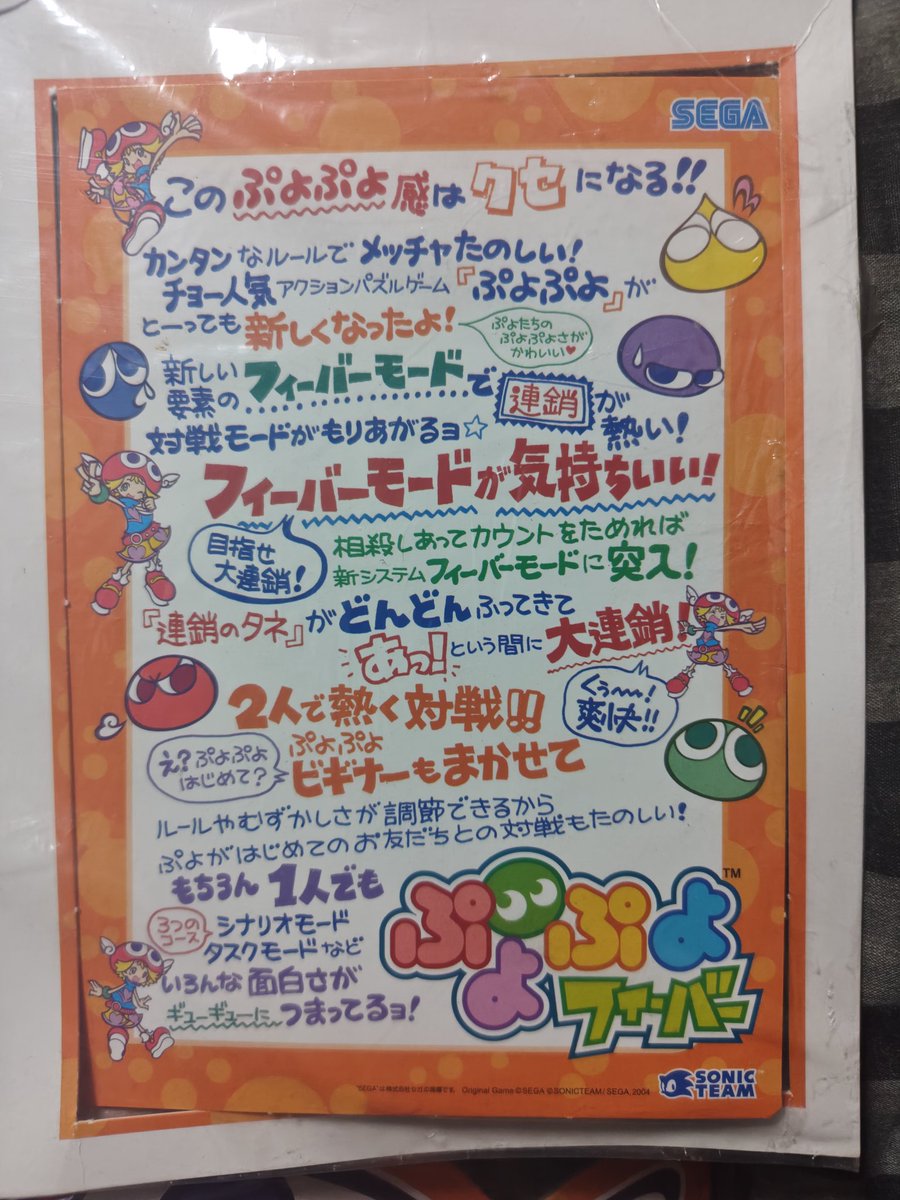 SEGA
このぷよぷよ感はクセになる!!
カンタンなルールでメッチャたのしい!
チョー人気アクションパズルゲーム『ぷよぷよ』が
とーっても新しくなったよ!
ぷよたちの
ぷよぷよさが
かわいい♥
新しい
要素のフィーバーモードで連鎖が
熱い!
対戦モードがもりあがるヨ☆
フィーバーモードが気持ちいい!
目指せ
大連鎖!
相殺しあってカウントをためれば
新システムフィーバーモードに突入!
『連鎖のタネ』がどんどんふってきて
あっ!という間に大連鎖!
くぅ〜〜!
爽快!!
2人で熱く対戦!!
え?ぷよぷよ
はじめて?
ぷよぷよ
ビギナーもまかせて
ルールやむずかしさが調節できるから
ぷよがはじめてのお友だちとの対戦もたのしい!
もちろん1人でも
3つの
コース
シナリオモード
タスクモードなど
いろんな面白さが
ギューギューにつまってるヨ!
ぷよぷよ
フィーバー
TM
"SEGA"は株式会社セガの商標です。 Original Game ©SEGA ©SONICTEAM/SEGA, 2004
SONIC
TEAM